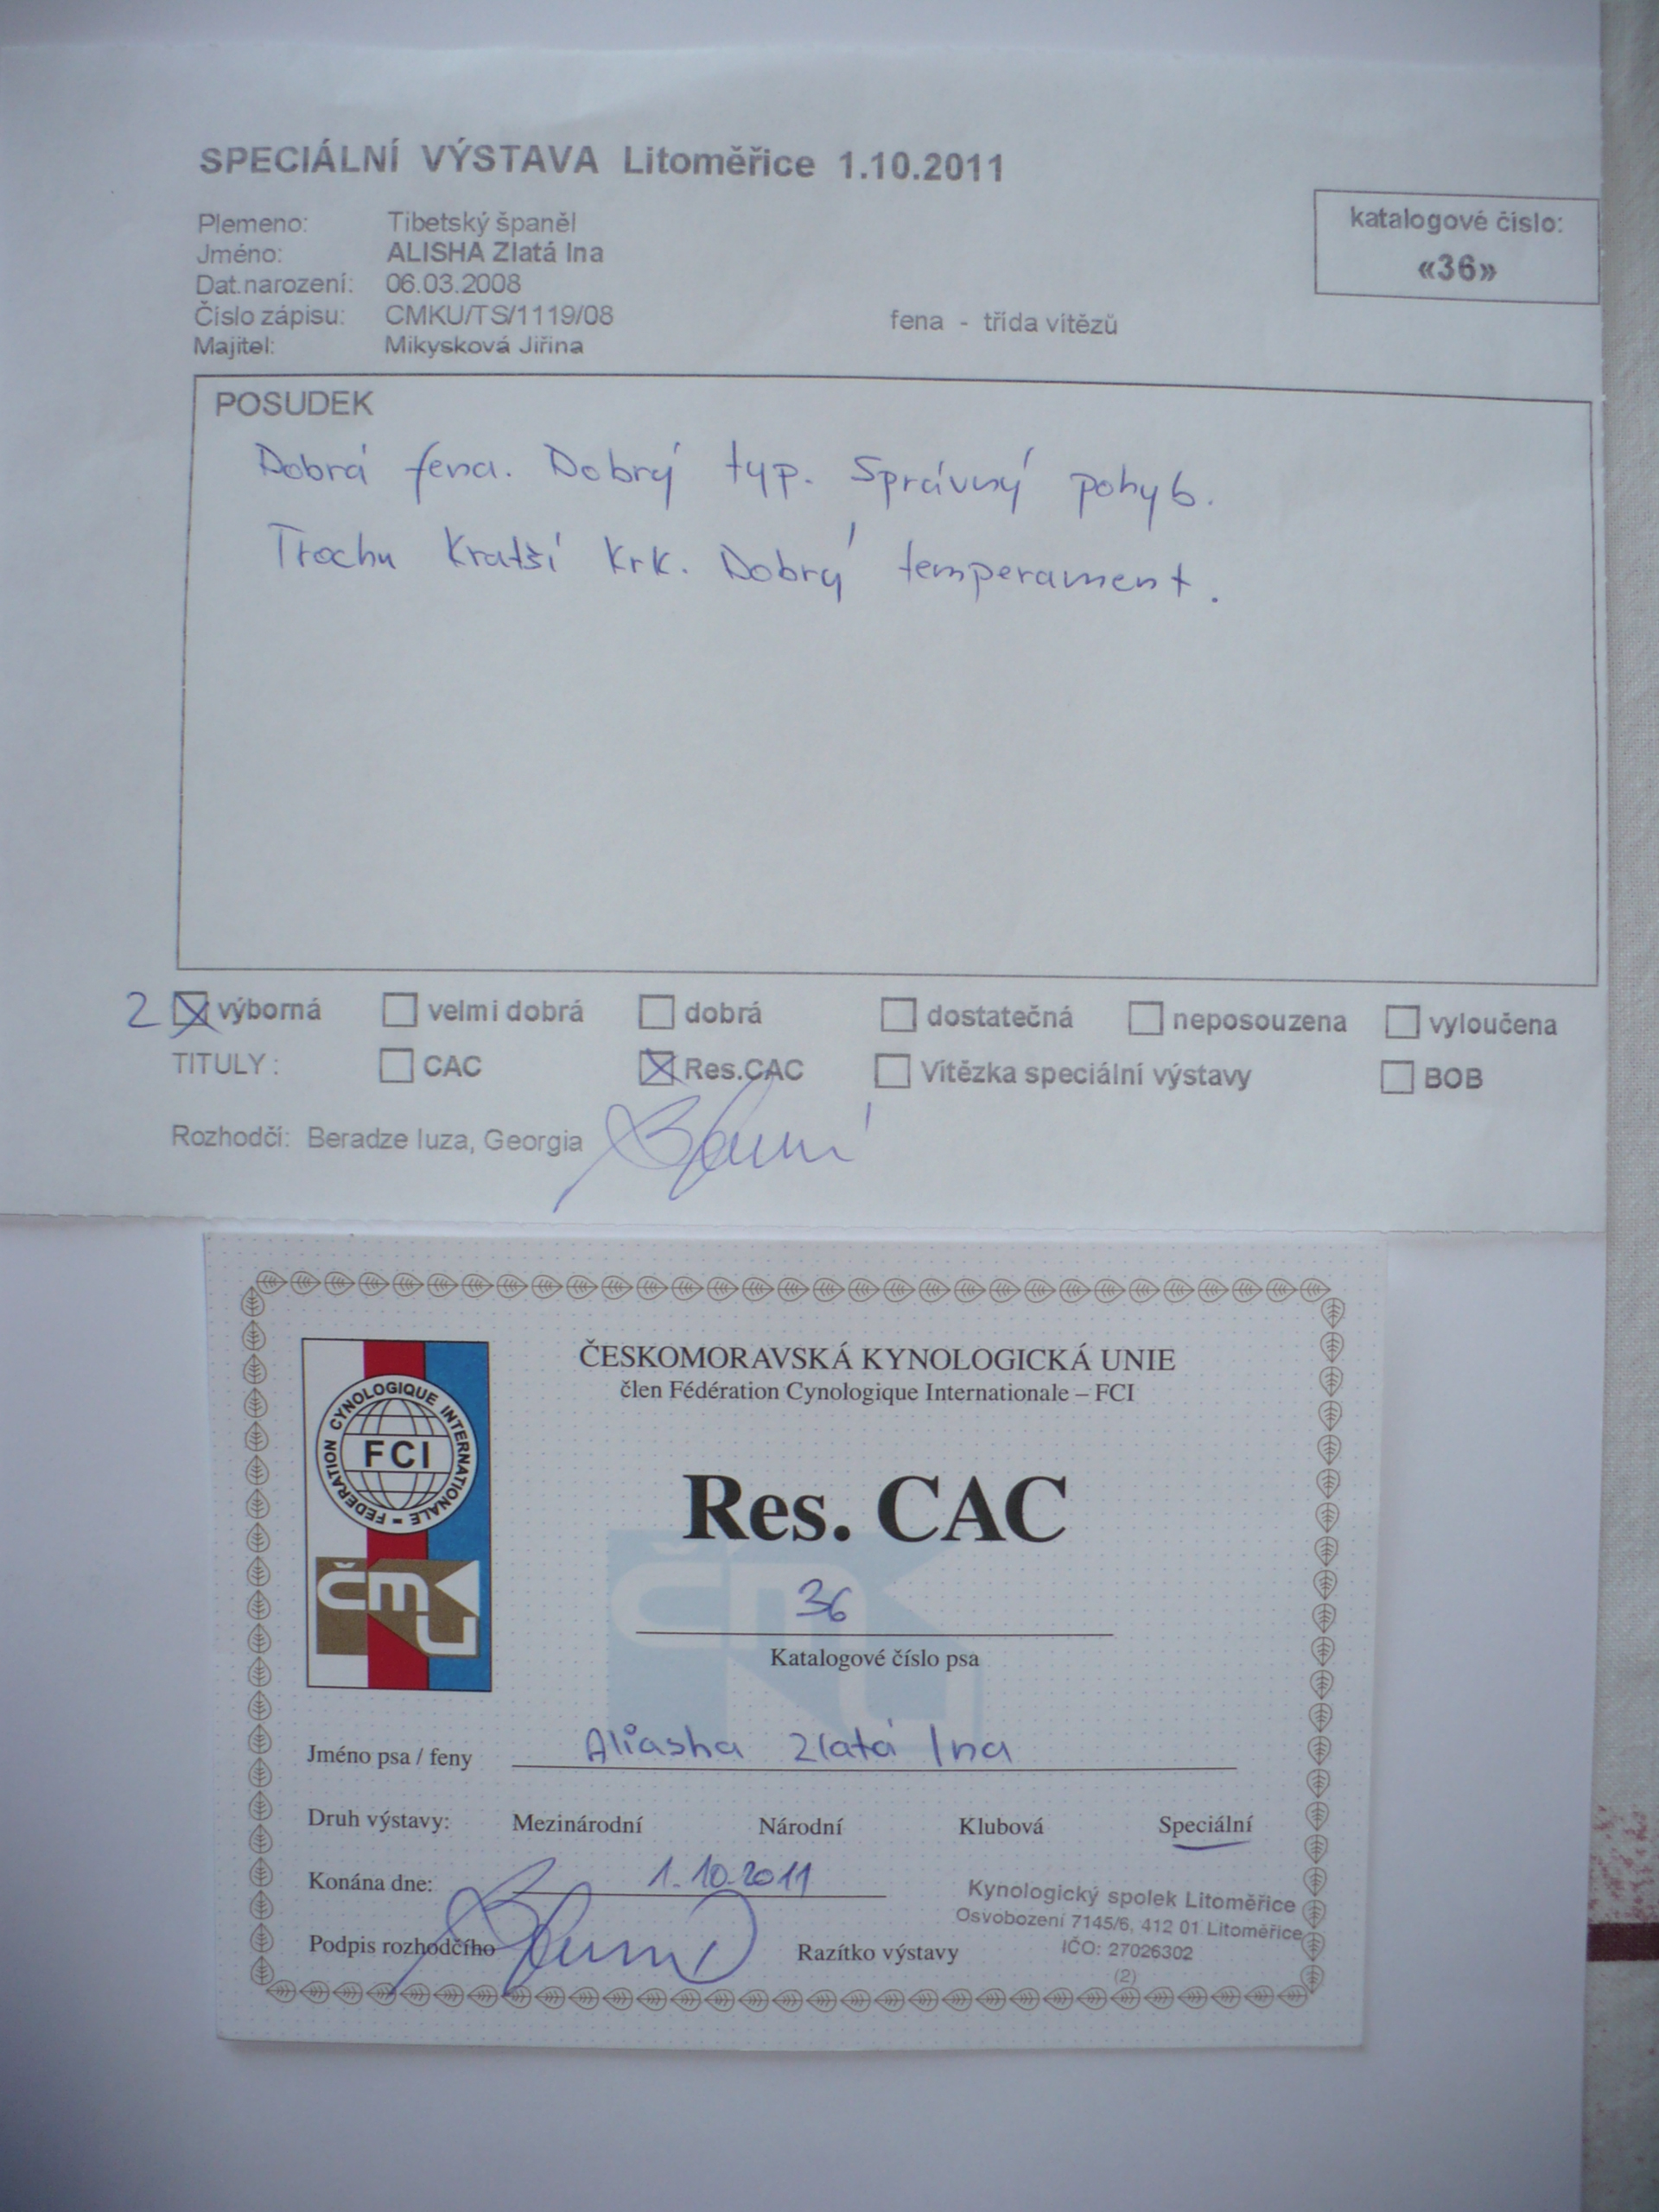 SPECIÁLNÍ VÝSTAVA Litoměřice 1.10.2011
katalogové číslo:
«36»
Plemeno: Tibetský španěl
Jméno: ALISHA Zlatá Ina
Dat.narození: 06.03.2008
Číslo zápisu: CMKU/TS/1119/08 fena - třída vítězů
Majitel: Mikysková Jiřina
POSUDEK
Dobrá fena. Dobrý typ. Správný pohyb.
Trochu Kratší Krk. Dobrý temperament.
2 výborná velmi dobrá dobrá dostatečná neposouzena vyloučena
TITULY: CAC Res.CAC Vítězka speciální výstavy BOB
Rozhodčí: Beradze Iuza, Georgia
ČESKOMORAVSKÁ KYNOLOGICKÁ UNIE
člen Fédération Cynologique Internationale – FCI
FEDERATION CYNOLOGIQUE INTERNATIONALE –
FCI
čmku
Res. CAC
36
Katalogové číslo psa
Jméno psa / feny Aliasha Zlatá Ina
Druh výstavy: Mezinárodní Národní Klubová Speciální
Konána dne: 1.10.2011
Podpis rozhodčího Razítko výstavy
Kynologický spolek Litoměřice
Osvobození 7145/6, 412 01 Litoměřice
IČO: 27026302
(2)